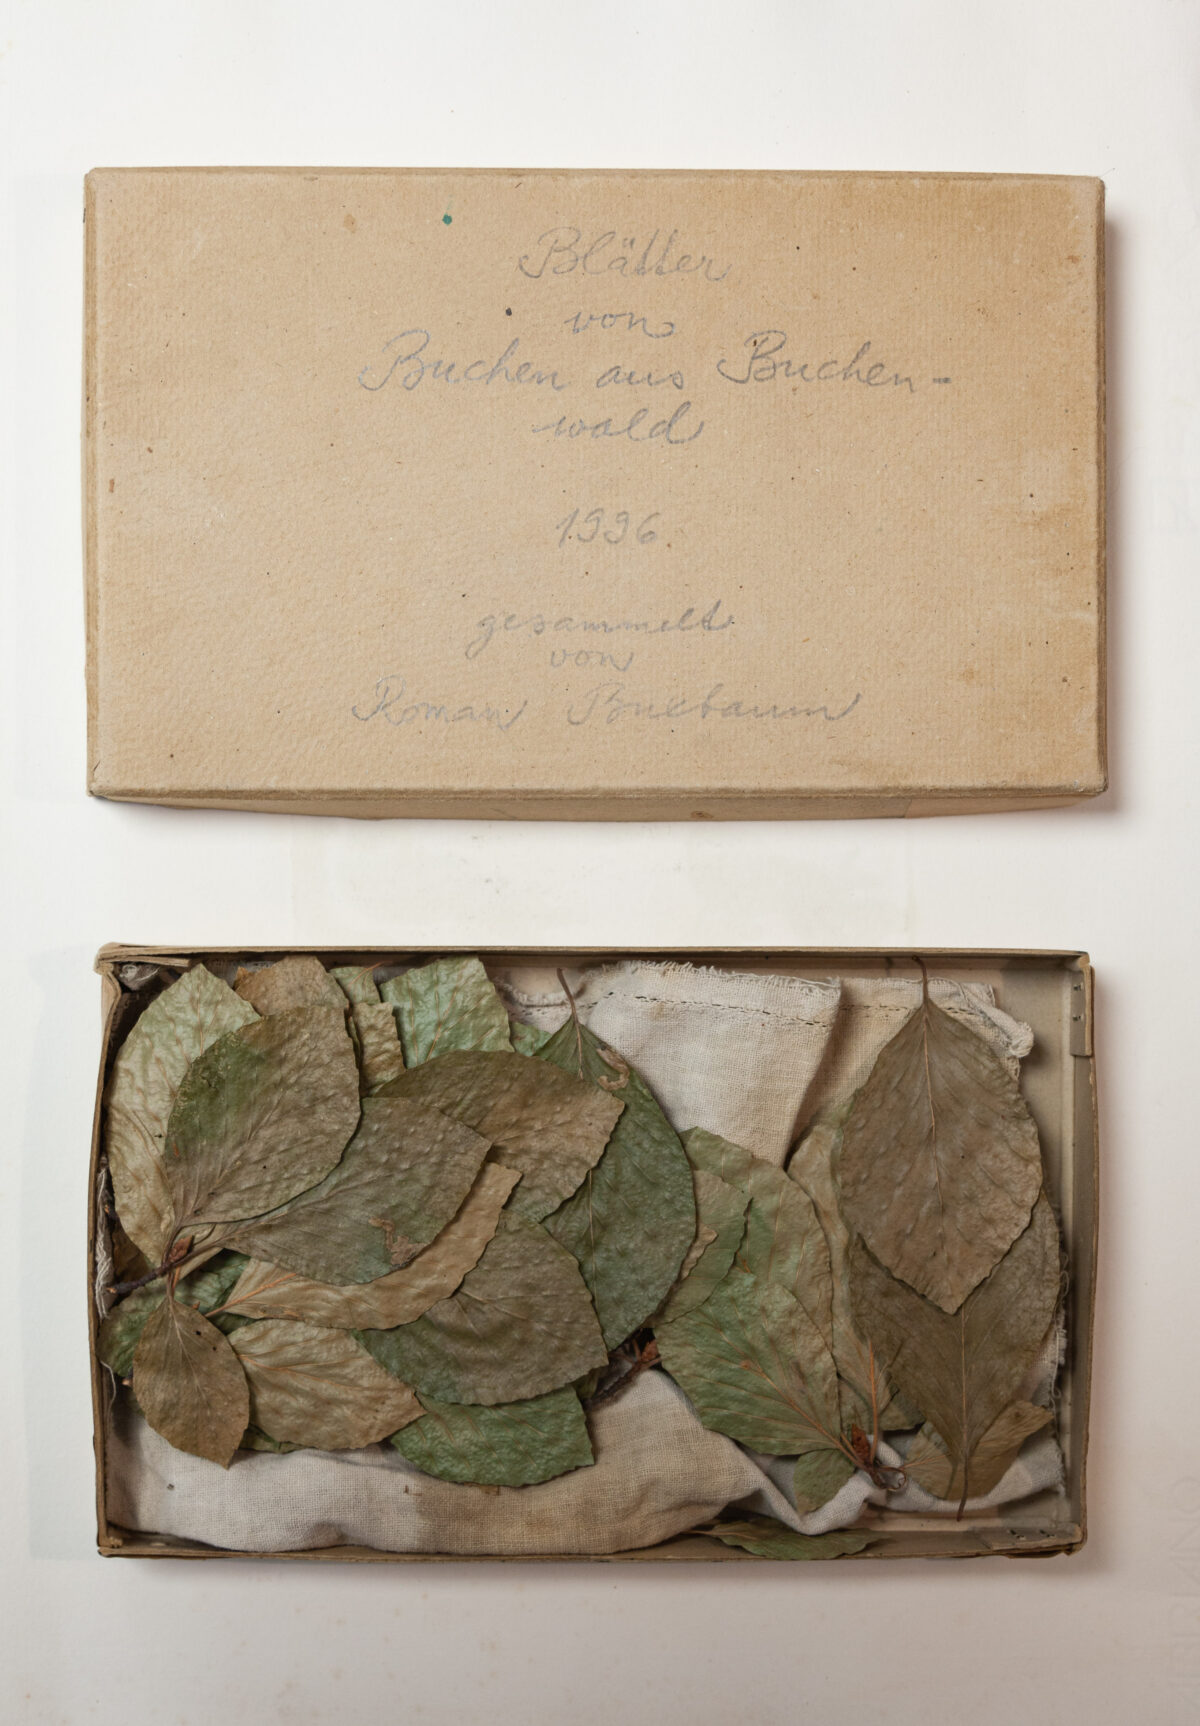 Blätter
von
Buchen aus Buchen-
wald
1996
gesammelt
von
Roman Buxbaum